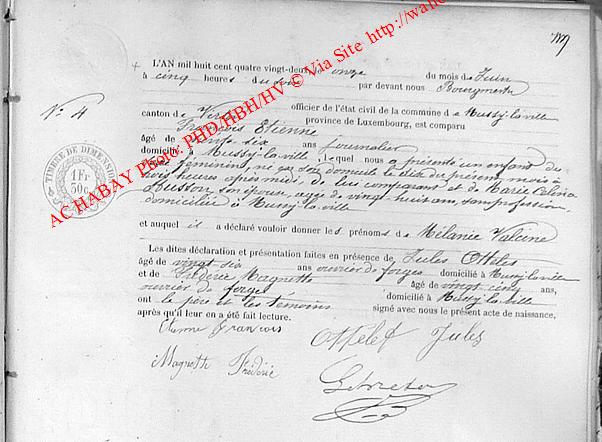 AC HABAY Photo: PHD/HBH/HV © Via Site http://wa
N° 4
TIMBRE DE DIMENSION
1 Fr
50c
L'AN mil huit cent quatre vingt-deux, le onze du mois de Juin
à cinq heures du soir par devant nous Bourgmestre
officier de l'état civil de la commune de Mussy-la-ville
canton de Virton province de Luxembourg, est comparu
François Etienne
âgé de trente-six ans journalier
domicilié à Mussy-la-ville lequel nous a présenté un enfant du
sexe féminin, né en son domicile le dix du présent mois à
trois heures après-midi, de lui comparant et de Marie Celina
son épouse, âgée de vingt-huit ans, sans profession,
domiciliée à Mussy-la-ville
et auquel il a déclaré vouloir donner les prénoms de Mélanie Valcine
Les dites déclaration et présentation faites en présence de Jules Ottelet
âgé de vingt-six ans ouvrier de forges domicilié à Mussy-la-ville
et de Frédéric Magnette âgé de vingt cinq ans,
ouvrier de forges domicilié à Mussy-la-ville
ont le père et les témoins signé avec nous le présent acte de naissance,
après qu'il leur en a été fait lecture.
Etienne François
Ottelet Jules
Magnette Frédéric